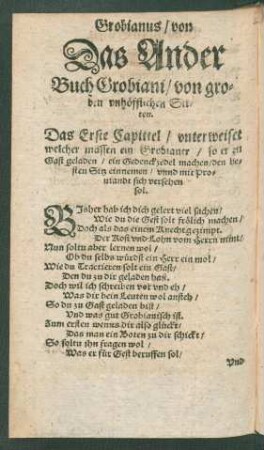 Grobianus / von
Das Ander
Buch Grobiani / von gro-
ben vnhöfflichen Sit-
ten.
Das Erste Capittel / vnterweiset
welcher massen ein Grobianer / so er zu
Gast geladen / ein Gedenckzedel machen / den be-
sten Sitz einnemen / vnnd mit pro-
uiandt sich versehen
sol.
BIsher hab ich dich gelert viel sachen /
Wie du die Gest solt frölich machen /
Doch als das einem Knecht gezimpt.
Der Kost vnd Lohn vom Herrn nimt /
Nun soltu aber lernen wol /
Ob du selbs würdst ein Herr ein mol /
Wie du Tractieren solt ein Gast /
Den du zu dir geladen hast.
Doch wil ich schreiben vor vnd eh /
Was dir bein Leuten wol ansteh /
So du zu Gast geladen bist /
Vnd was gut Grobianisch ist.
Zum ersten wenns dir also glückt /
Das man ein Boten zu dir schickt /
So soltu ihn fragen wol /
Was er für Gest beruffen sol /
Vnd